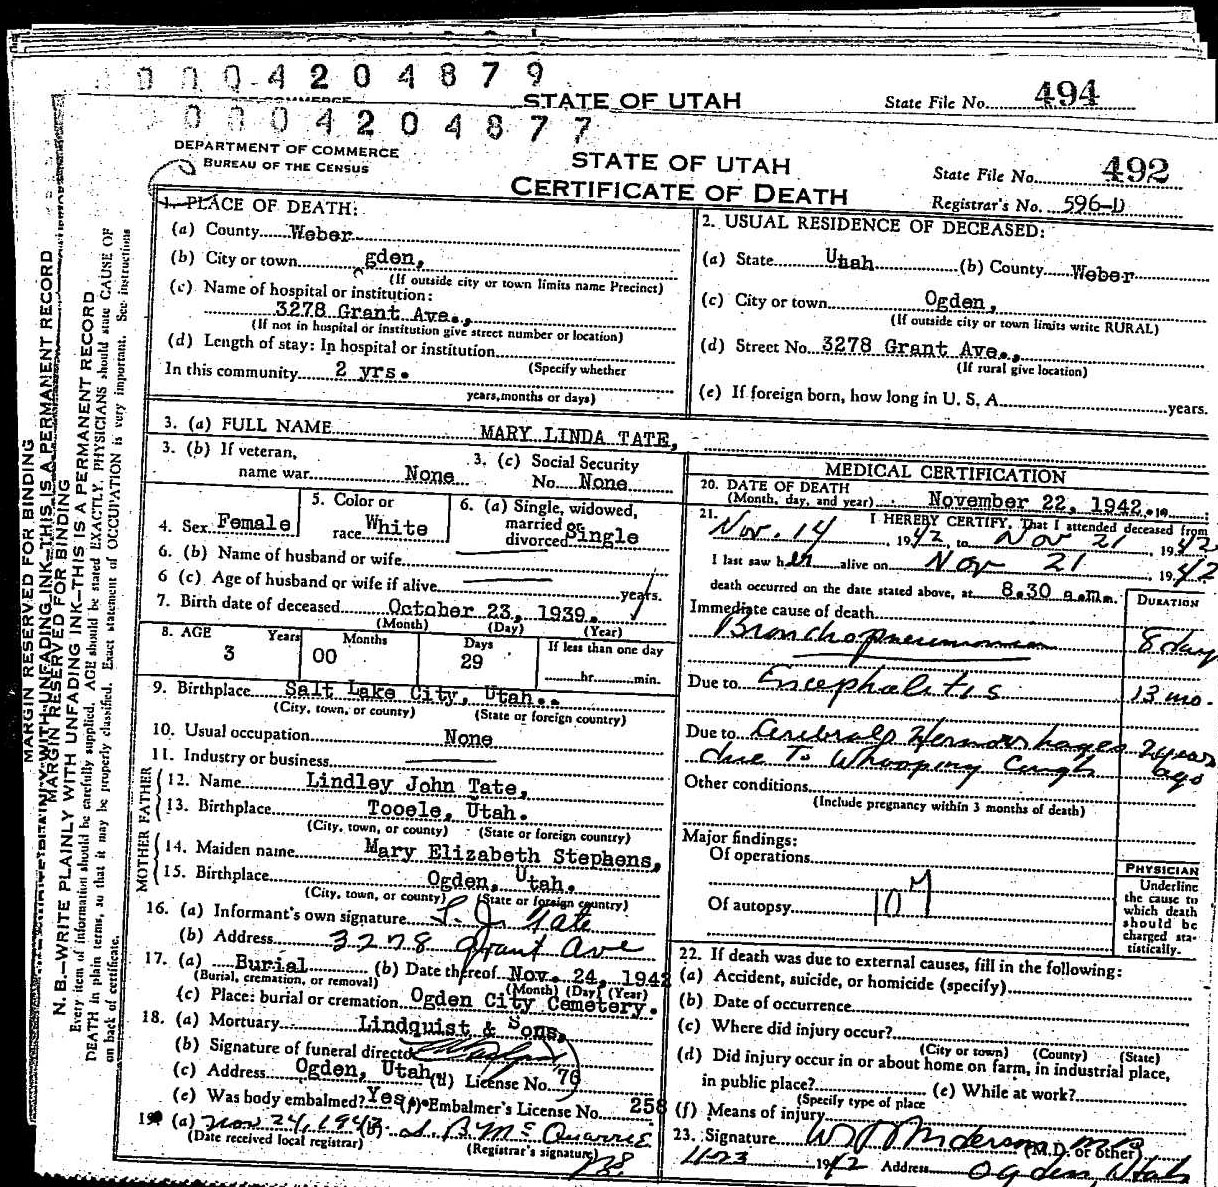 0 0 0 4 2 0 4 8 7 9
STATE OF UTAH
State File No. 494
0 0 0 4 2 0 4 8 7 7
DEPARTMENT OF COMMERCE
BUREAU OF THE CENSUS
STATE OF UTAH
CERTIFICATE OF DEATH
State File No. 492
Registrar's No. 596-D
MARGIN RESERVED FOR BINDING
N. B.—WRITE PLAINLY WITH UNFADING INK—THIS IS A PERMANENT RECORD
Every item of information should be carefully supplied. AGE should be stated EXACTLY. PHYSICIANS should state CAUSE OF
DEATH in plain terms, so that it may be properly classified. Exact statement of OCCUPATION is very important. See instructions
on back of certificate.
1. PLACE OF DEATH:
(a) County Weber
(b) City or town gden,
(If outside city or town limits name Precinct)
(c) Name of hospital or institution:
3278 Grant Ave.,
(If not in hospital or institution give street number or location)
(d) Length of stay: In hospital or institution
(Specify whether
In this community 2 yrs.
years, months or days)
2. USUAL RESIDENCE OF DECEASED:
(a) State Utah (b) County Weber
(c) City or town Ogden,
(If outside city or town limits write RURAL)
(d) Street No. 3278 Grant Ave.,
(If rural give location)
(e) If foreign born, how long in U. S. A. years.
3. (a) FULL NAME MARY LINDA TATE,
3. (b) If veteran, name war None
3. (c) Social Security No. None
4. Sex Female
5. Color or race White
6. (a) Single, widowed, married or divorced Single
6. (b) Name of husband or wife
6 (c) Age of husband or wife if alive years.
7. Birth date of deceased October 23, 1939.
(Month) (Day) (Year)
8. AGE Years Months Days If less than one day
3 00 29 hr. min.
9. Birthplace Salt Lake City, Utah..
(City, town, or county) (State or foreign country)
10. Usual occupation None
11. Industry or business
FATHER
12. Name Lindley John Tate,
13. Birthplace Tooele, Utah.
(City, town, or county) (State or foreign country)
MOTHER
14. Maiden name Mary Elizabeth Stephens,
15. Birthplace Ogden, Utah.
(City, town, or county) (State or foreign country)
16. (a) Informant's own signature L. J. Tate
(b) Address 3278 Grant Ave
17. (a) Burial (b) Date thereof Nov. 24, 1942
(Burial, cremation, or removal) (Month) (Day) (Year)
(c) Place: burial or cremation Ogden City Cemetery.
18. (a) Mortuary Lindquist & Sons,
(b) Signature of funeral director
(c) Address Ogden, Utah (d) License No. 76
(e) Was body embalmed? Yes. (f) Embalmer's License No. 258
19. (a) Nov 24, 1942 (b)
(Date received local registrar) (Registrar's signature)
MEDICAL CERTIFICATION
20. DATE OF DEATH
(Month, day, and year) November 22, 1942. 19
21. I HEREBY CERTIFY, That I attended deceased from
Nov. 14, 1942 to Nov 21, 1942
I last saw her alive on Nov 21 1942
death occurred on the date stated above, at 8.30 a.m.
DURATION
Immediate cause of death
Bronchopneumonia 8 days
Due to Encephalitis 13 mo.
Due to Cerebral Hemorrhages 2 years
due To Whooping Cough ago
Other conditions
(Include pregnancy within 3 months of death)
Major findings:
Of operations
Of autopsy
107
PHYSICIAN
Underline
the cause to
which death
should be
charged sta-
tistically.
22. If death was due to external causes, fill in the following:
(a) Accident, suicide, or homicide (specify)
(b) Date of occurrence
(c) Where did injury occur?
(City or town) (County) (State)
(d) Did injury occur in or about home on farm, in industrial place,
in public place? (e) While at work?
(Specify type of place
(f) Means of injury
23. Signature Anderson M.D.
(M.D. or other)
11-23 1942 Address Ogden, Utah